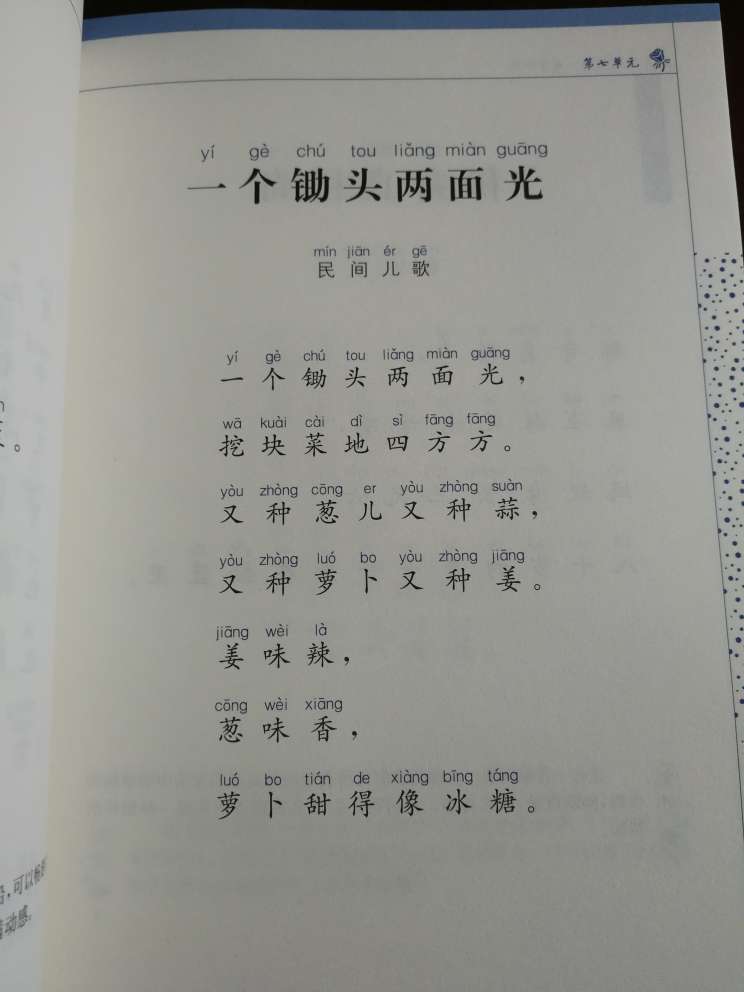 第七单元
yí gè chú tou liǎng miàn guāng
一个锄头两面光
mín jiān ér gē
民间儿歌
yí gè chú tou liǎng miàn guāng
一个锄头两面光，
wā kuài cài dì sì fāng fāng
挖块菜地四方方。
yòu zhòng cōng er yòu zhòng suàn
又种葱儿又种蒜，
yòu zhòng luó bo yòu zhòng jiāng
又种萝卜又种姜。
jiāng wèi là
姜味辣，
cōng wèi xiāng
葱味香，
luó bo tián de xiàng bīng táng
萝卜甜得像冰糖。
，可以
动感。